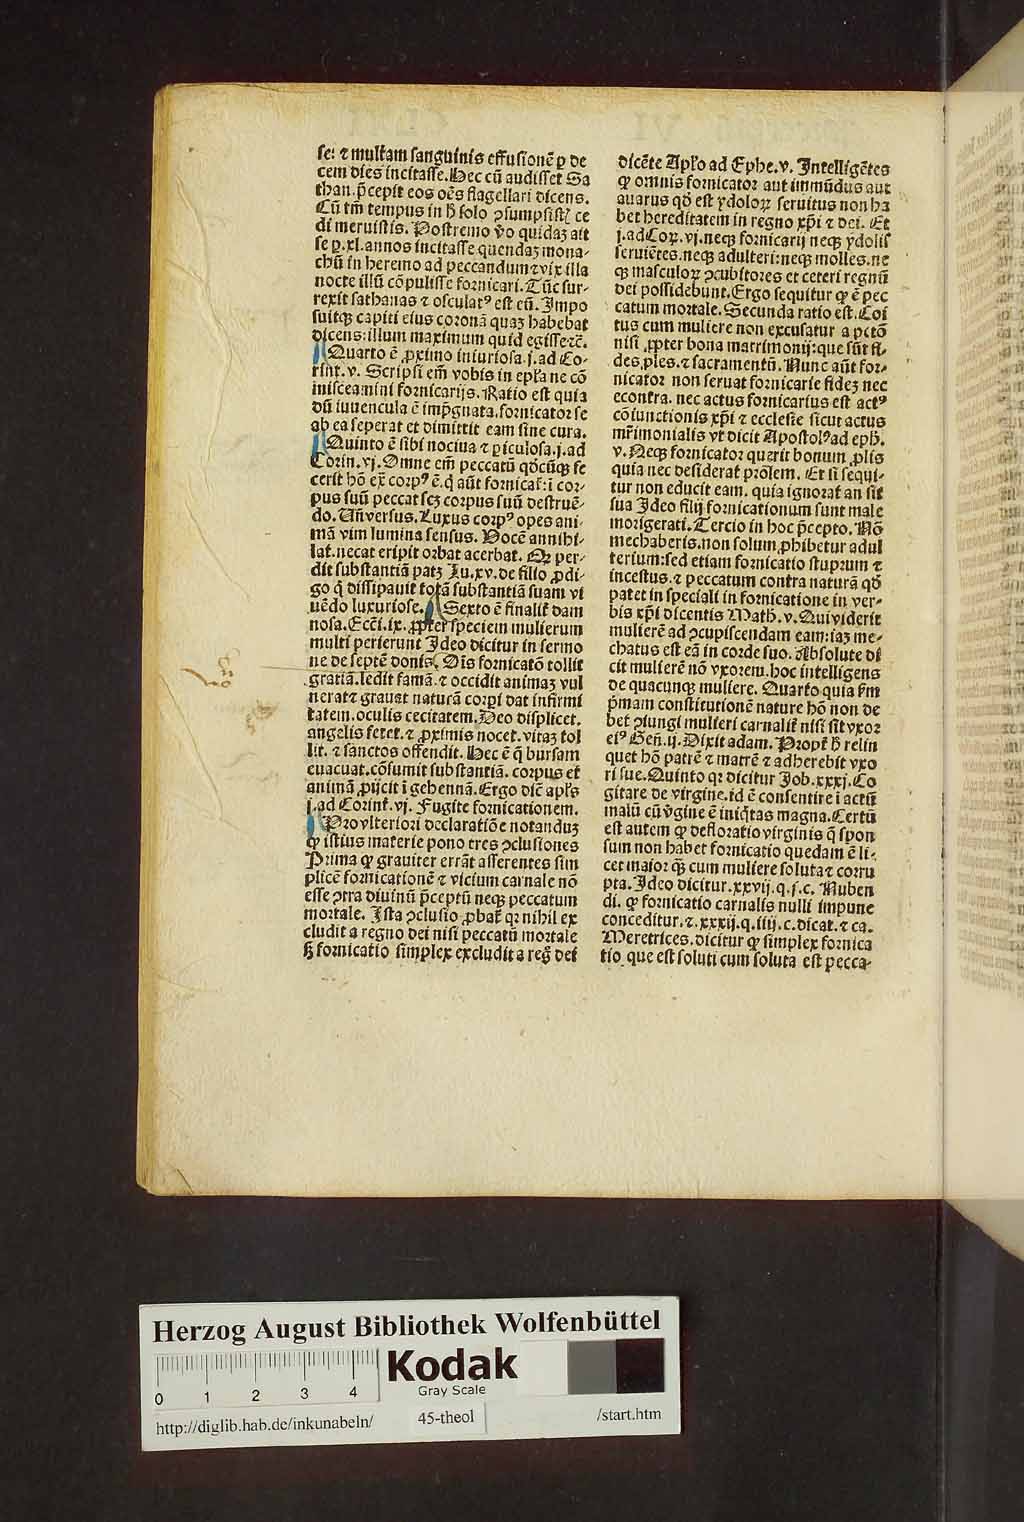 se: ⁊ multam sanguinis effusionē ꝑ de
cem dies incitasse. Hec cū audisset Sa
than. p̄cepit eos oēs flagellari dicens.
Cū tm̄ tempus in ħ solo ↄsumpsist᷒ ce
di meruistis. Postremo v̄o quidaꝫ ait
se ꝑ .xl. annos incitasse quendaꝫ mona-
chū in heremo ad peccandum ⁊ vix illa
nocte illū cōpulisse fornicari. Tūc sur-
rexit sathanas ⁊ osculatꝰ est eū. Impo
suitqꝫ capiti eius coronā quaꝫ habebat
dicens: illum maximum quid egisse ⁊c̄.
Quarto ē ꝓximo iniuriosa .j. ad Co-
rint. v. Scripsi em̄ vobis in epl̄a ne cō
misceamini fornicarijs. Ratio est quia
dū iuuencula ē imp̄gnata. fornicator se
ab ea seperat et dimittit eam sine cura.
Quinto ē sibi nociua ⁊ ꝑiculosa .j. ad
Corin. vj. Omne em̄ peccatū qd̄cūqꝫ fe
cerit hō ex̄ corpꝰ ē. q̄ aūt fornicat᷒: ī cor-
pus suū peccat scꝫ corpus suū destruē-
do. Vn̄ versus. Luxus corpꝰ opes ani-
mā vim lumina sensus. Vocē annihi-
lat. necat eripit orbat acerbat. Qꝛ per-
dit substantiā patꝫ Lu. xv. de filio ꝓdi-
go q̄ dissipauit totā substantiā suam vi
uēdo luxuriose. Sexto ē finalit᷒ dam
nosa. Ecc̄i. ix. ꝓpter speciem mulierum
multi perierunt Ideo dicitur in sermo
ne de septē donis. Oīs fornicatō tollit
gratiā. ledit famā. ⁊ occidit animaꝫ vul
nerat ⁊ grauat naturā corꝑi dat infirmi
tatem. oculis cecitatem. Deo displicet.
angelis fetet. ⁊ ꝓximis nocet. vitaꝫ tol
lit. ⁊ sanctos offendit. Hec ē q̄ bursam
euacuat. cōsumit substantiā. corpus et
animā ꝓijcit ī gehennā. Ergo dic̄ apl̄s
j. ad Corint᷒. vj. Fugite fornicationem.
Pro vlteriori declaratiōe notanduꝫ
ꝙ istius materie pono tres ↄclusiones
Prima ꝙ grauiter errāt asserentes sim
plicē fornicationē ⁊ vicium carnale nō
esse ↄtra diuinū p̄ceptū neqꝫ peccatum
mortale. Ista ↄclusio ꝓbat᷒ qꝛ nihil ex
cludit a regno dei nisi peccatū mortale
ẜ fornicatio simplex excludit a reḡ dei
dicēte Apl̄o ad Ephe. v. Intelligētes
ꝙ omnis fornicator aut immūdus aut
auarus qd̄ est ydoloꝝ seruitus non ha
bet hereditatem in regno xp̄i ⁊ dei. Et
j. ad Coꝝ. vj. neqꝫ fornicarij neqꝫ ydolis
seruiētes. neqꝫ adulteri: neqꝫ molles. ne
qꝫ masculoꝝ ↄcubitores et ceteri regnū
dei possidebunt. Ergo sequitur ꝙ ē pec
catum mortale. Secunda ratio est. Coi
tus cum muliere non excusatur a pctō
nisi ꝓpter bona matrimonij: que sūt fi-
des. ꝓles. ⁊ sacramentū. Nunc aūt for-
nicator non seruat fornicarie fideꝫ nec
econtra. nec actus fornicarius est actꝰ
cōiunctionis xp̄i ⁊ ecclesie sicut actus
mr̄imonialis vt dicit Apostolꝰ ad eph̄.
v. Neqꝫ fornicator querit bonum ꝓlis
quia nec desiderat prolem. Et si sequi-
tur non educit eam. quia ignorat an sit
sua Ideo filij fornicationum sunt male
morigerati. Tercio in hoc p̄cepto. Nō
mechaberis. non solum ꝓhibetur adul
terium: sed etiam fornicatio stuprum ⁊
incestus. ⁊ peccatum contra naturā qd̄
patet in speciali in fornicatione in ver-
bis xp̄i dicentis Math. v. Qui viderit
mulierē ad ↄcupiscendam eam: iaꝫ me-
chatus est eā in corde suo. Absolute di
cit mulierē nō vxorem. hoc intelligens
de quacunqꝫ muliere. Quarto quia ẜm
p̄mam constitutionē nature hō non de
bet ↄiungi mulieri carnalit᷒ nisi sit vxor
eiꝰ Gen̄. ij. Dixit adam. Propt᷒ ħ relin
quet hō patrē ⁊ matrē ⁊ adherebit vxo
ri sue. Quinto qꝛ dicitur Job. xxxj. Co
gitare de virgine. id ē consentire ī actū
malū cū v̄gine ē iniq̄tas magna. Certū
est autem ꝙ defloratio virginis q̄ spon
sum non habet fornicatio quedam ē li-
cet maior q̄ꝫ cum muliere soluta ⁊ corru
pta. Ideo dicitur. xxvij. q. j. c. Nuben
di. ꝙ fornicatio carnalis nulli impune
conceditur. ⁊ .xxxij. q. iiij. c. dicat. ⁊ ca.
Meretrices. dicitur ꝙ simplex fornica
tio que est soluti cum soluta est pecca-
Herzog August Bibliothek Wolfenbüttel
Kodak
Gray Scale
0 1 2 3 4
http://diglib.hab.de/inkunabeln/ 45-theol /start.htm